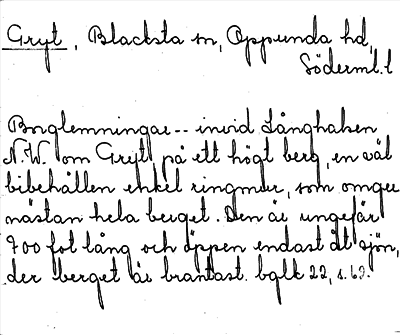 Gryt, Blacksta sn, Oppunda hd,
Söderml.l
Borglemningar -- invid Långhalsen
N.W. om Gryt, på ett högt berg, en väl
bibehållen enkel ringmur, som omger
nästan hela berget. Den är ungefär
700 fot lång och öppen endast åt sjön,
der berget är brantast. bglk 22, s. 63.